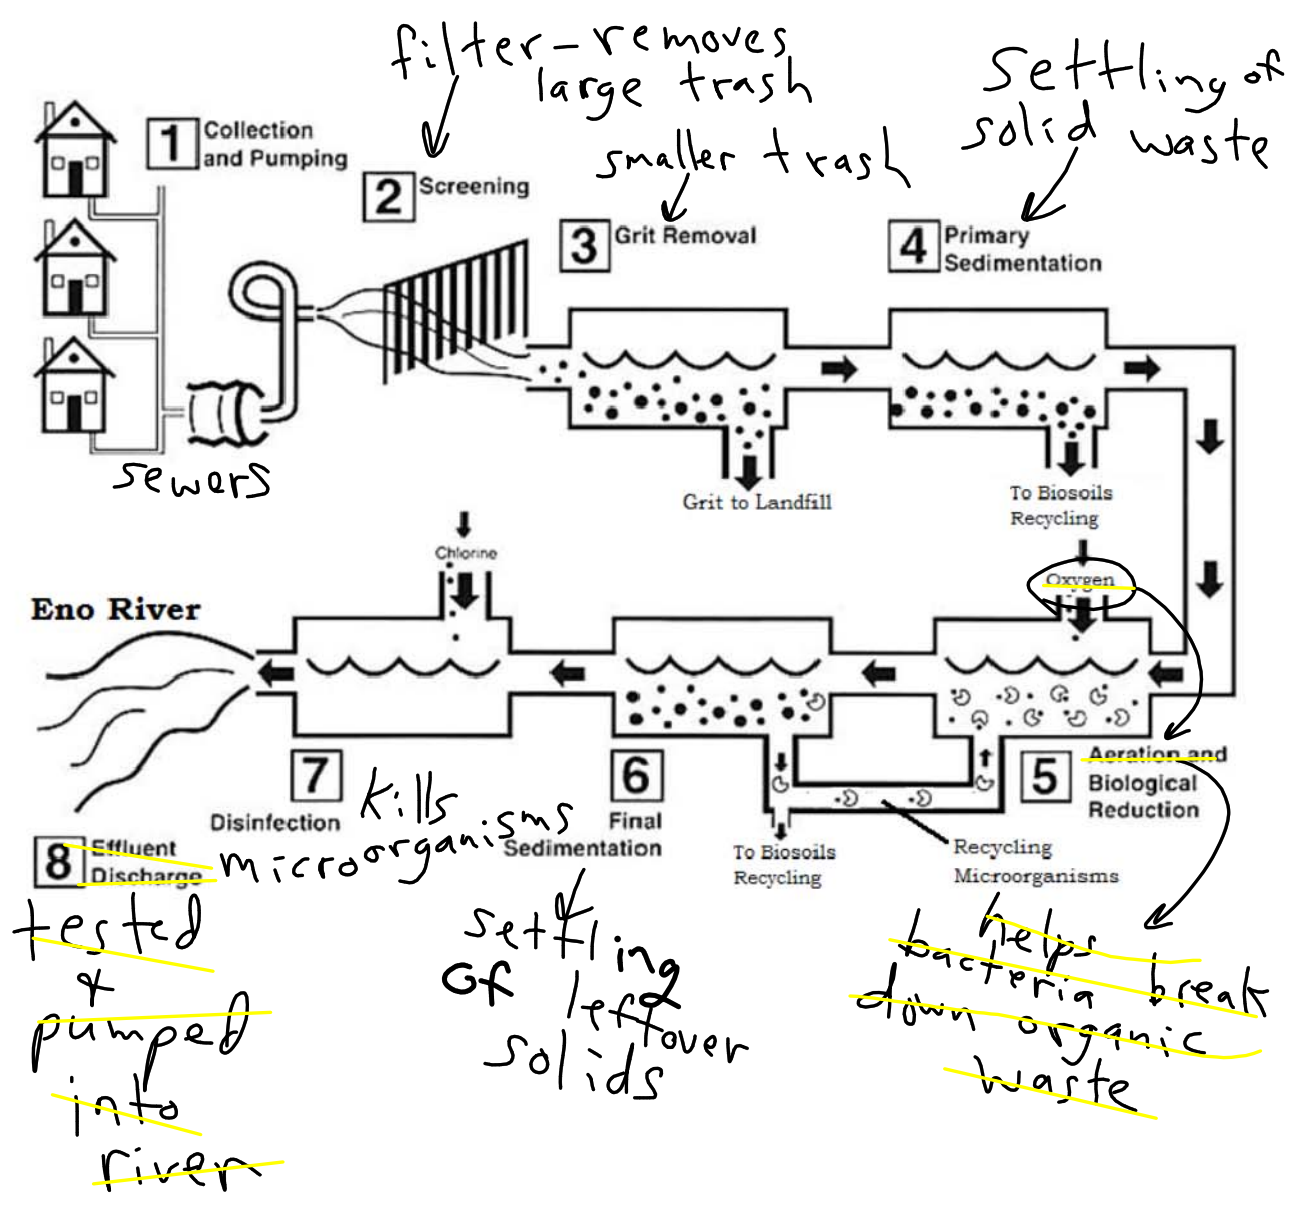 filter-removes
large trash
smaller trash
Settling of
solid waste
1 Collection
and Pumping
2 Screening
3 Grit Removal
4 Primary
Sedimentation
sewers
Grit to Landfill
To Biosoils
Recycling
Chlorine
Oxygen
Eno River
5 Aeration and
Biological
Reduction
6
Final
Sedimentation
7
Disinfection
kills
microorganisms
8 Effluent
Discharge
To Biosoils
Recycling
Recycling
Microorganisms
tested
&
pumped
into
river
settling
of leftover
solids
helps
bacteria break
down organic
waste